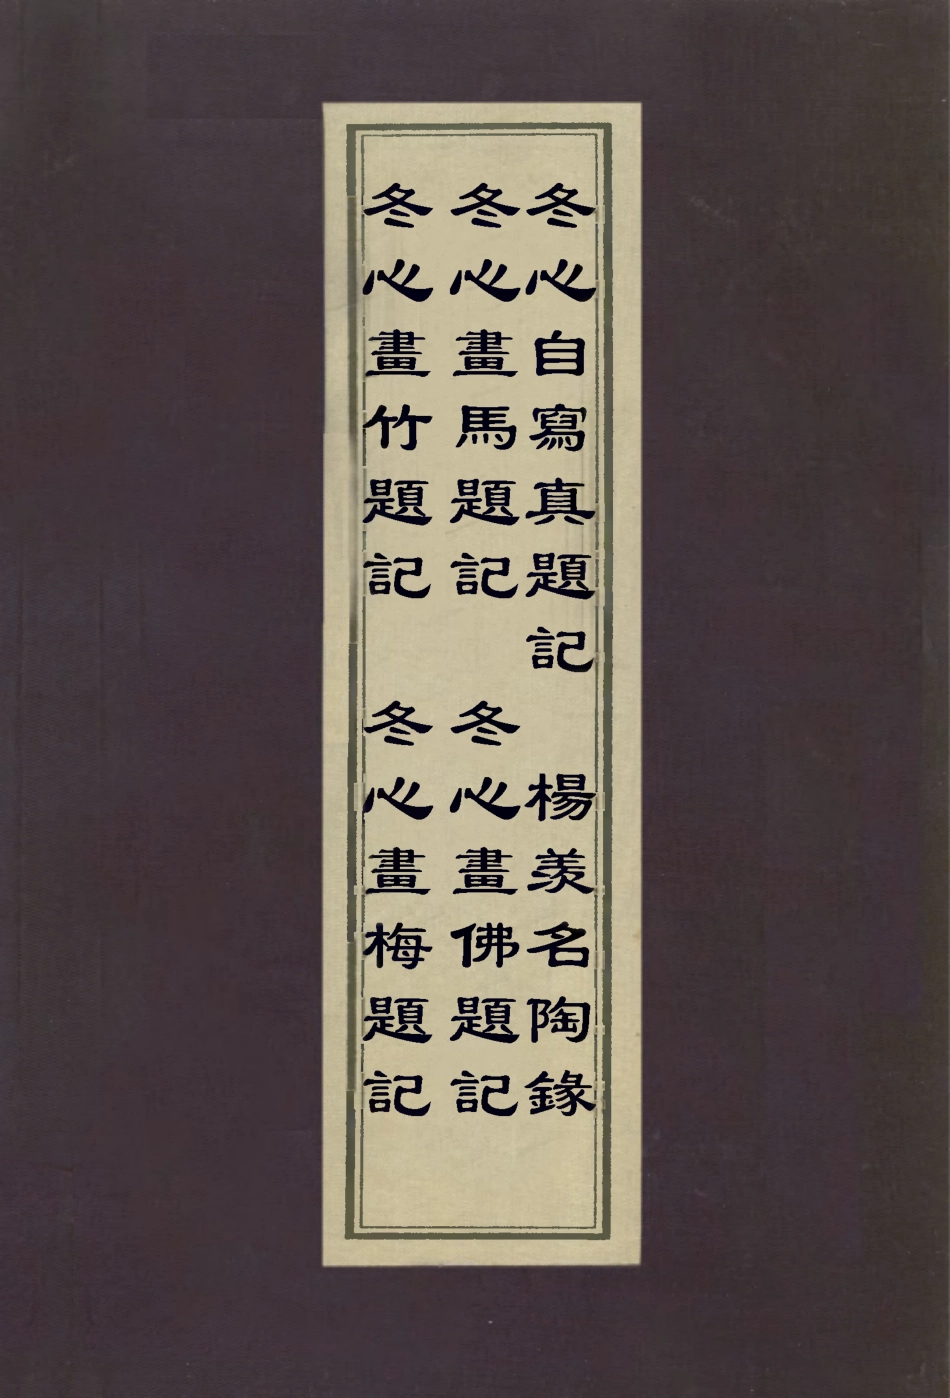 冬心自寫真題記 楊羨名陶錄
冬心畫馬題記 冬心畫佛題記
冬心畫竹題記 冬心畫梅題記